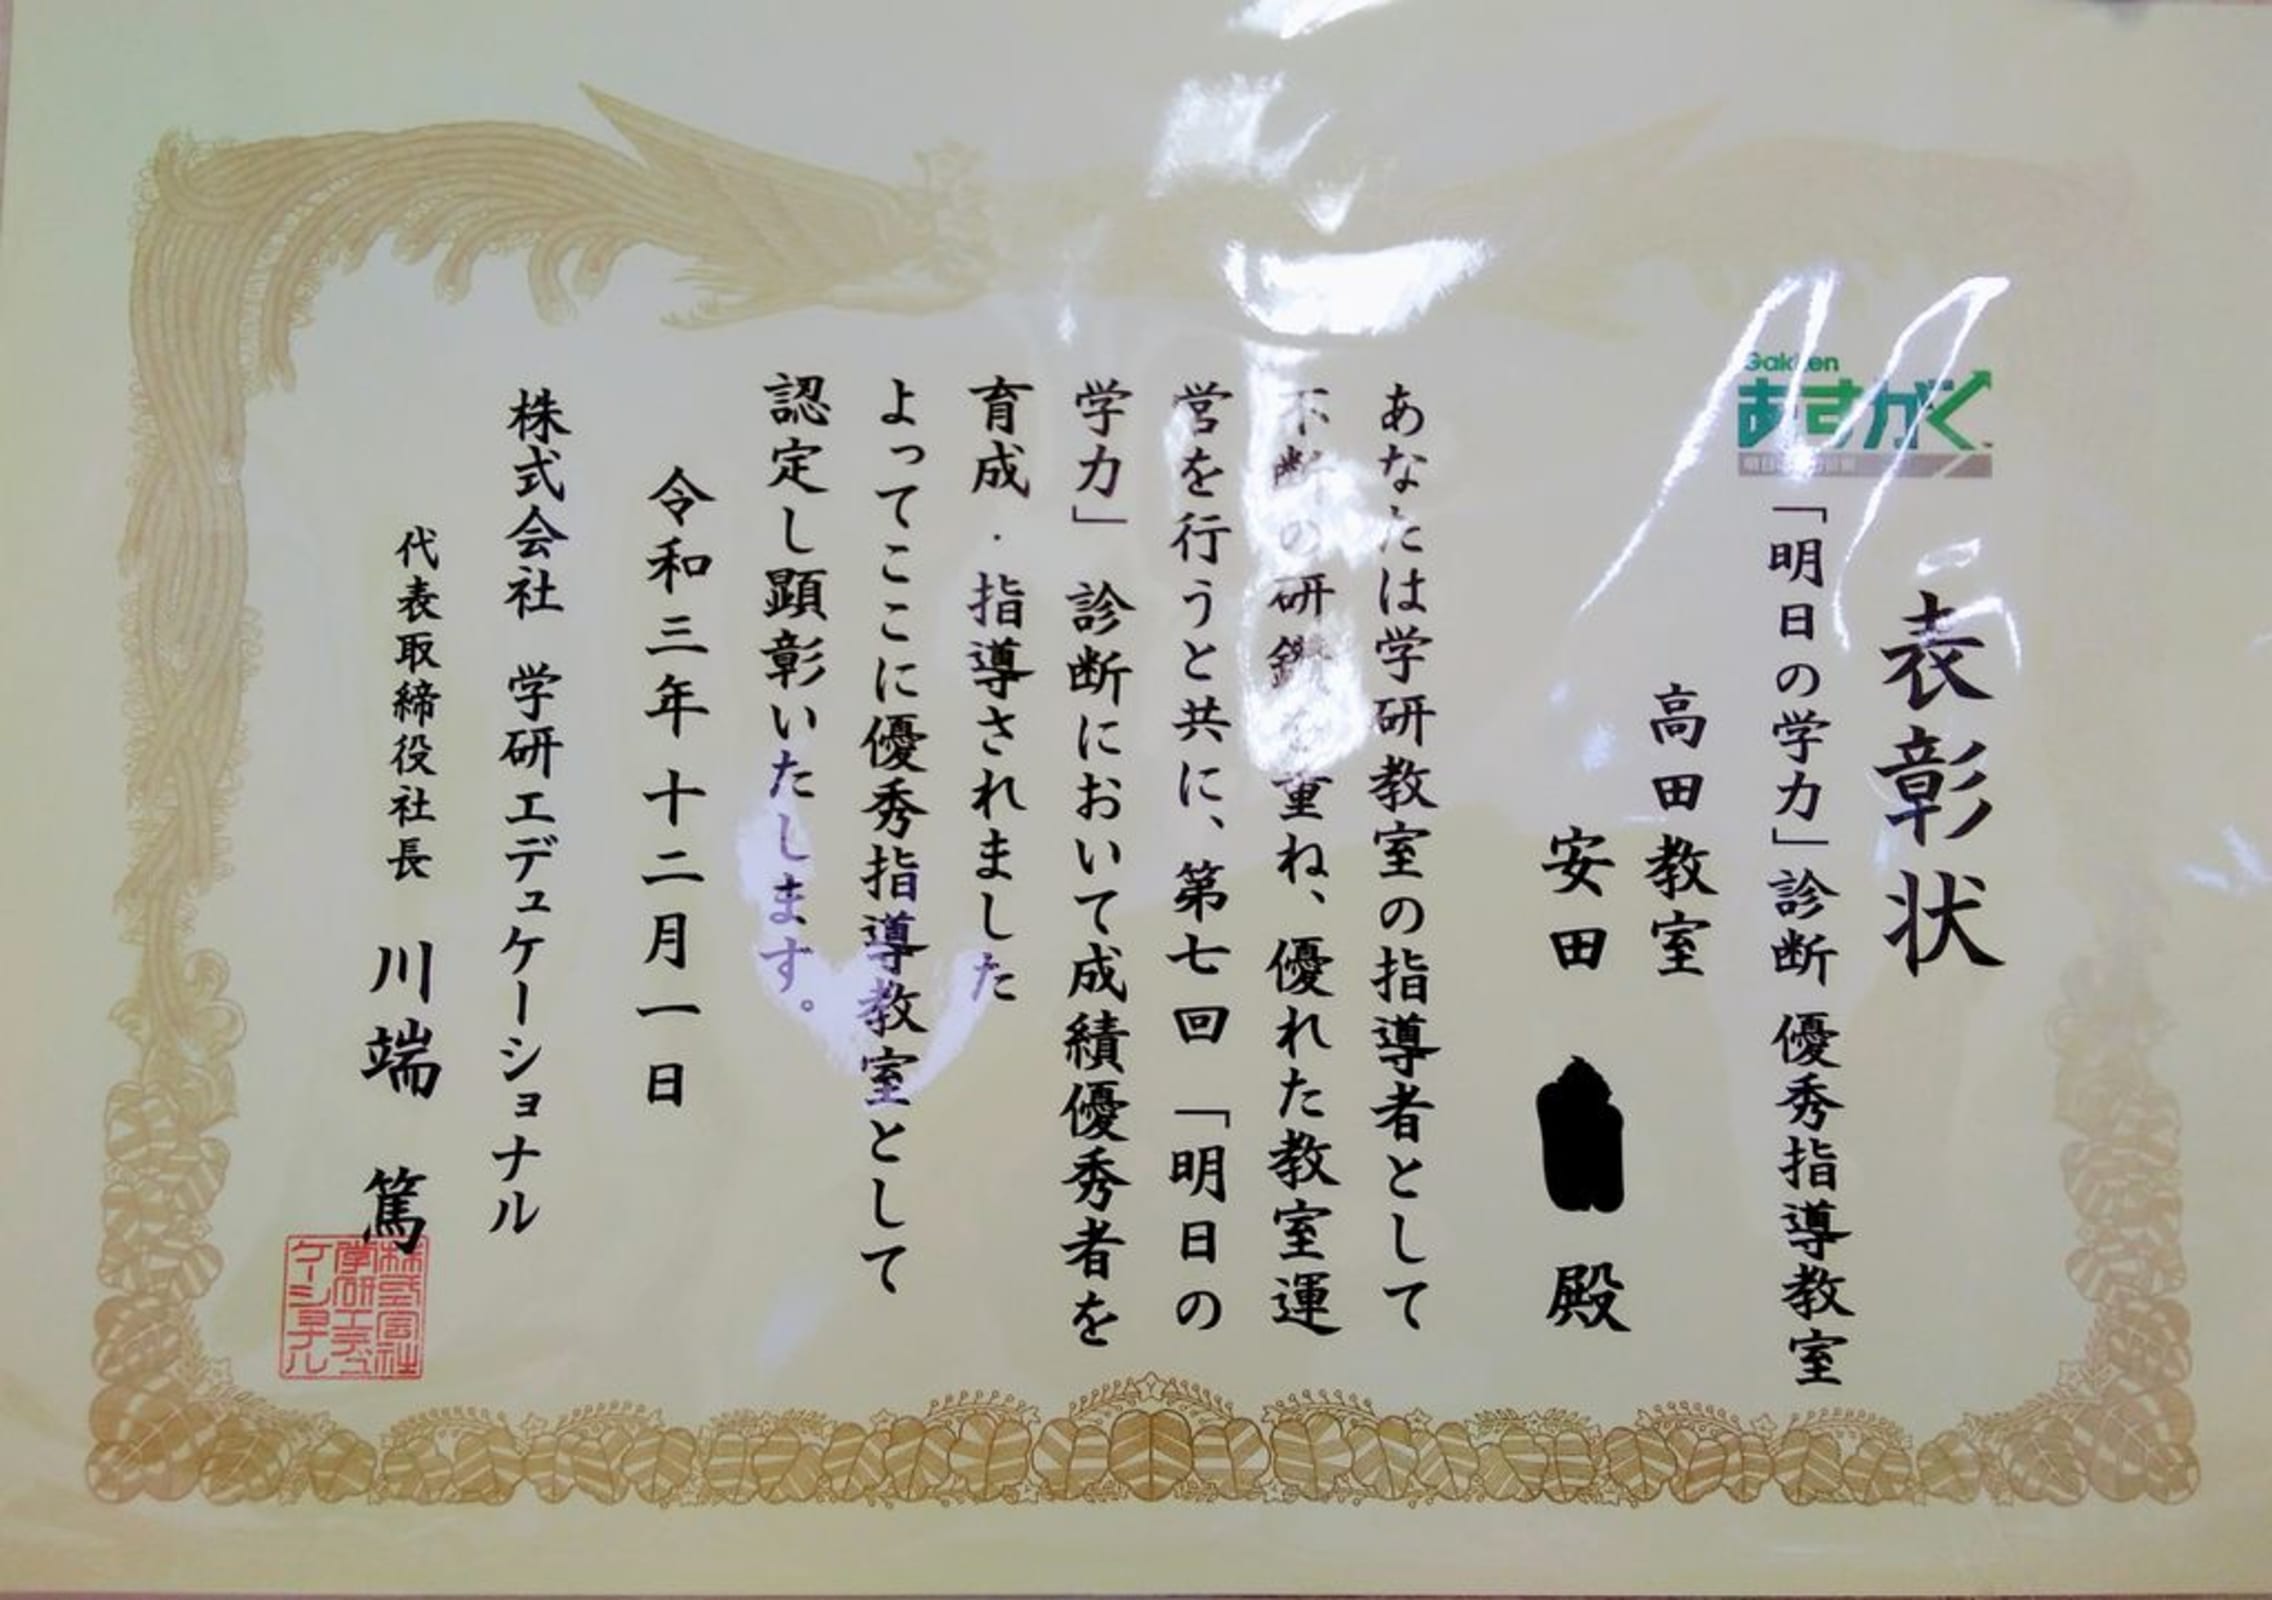 表彰状
Gakken
あすがく
「明日の学力」診断 優秀指導教室
高田教室
安田 殿
あなたは学研教室の指導者として
不断の研鑽を重ね、優れた教室運
営を行うと共に、第七回 「明日の
学力」 診断において成績優秀者を
育成・指導されました
よってここに優秀指導教室として
認定し顕彰いたします。
令和三年十二月一日
株式会社 学研エデュケーショナル
代表取締役社長 川端 篤
株式会社
学研エデュ
ケーショナル